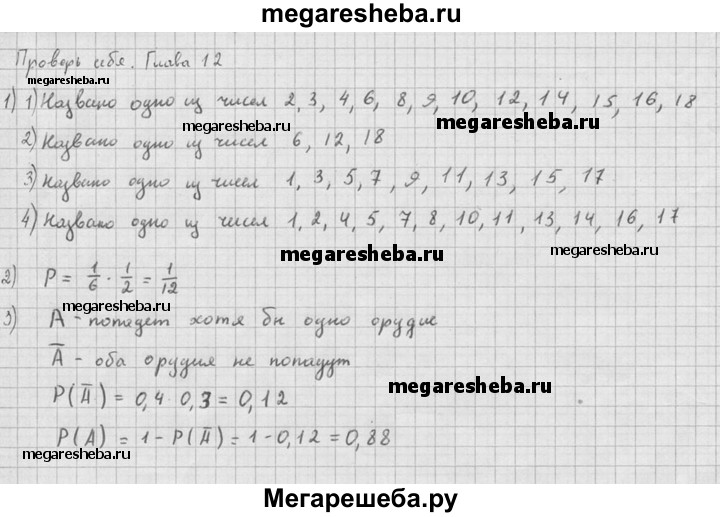 megaresheba.ru
Проверь себя. Глава 12
megaresheba.ru
1) 1) Названо одно из чисел 2, 3, 4, 6, 8, 9, 10, 12, 14, 15, 16, 18
megaresheba.ru
megaresheba.ru
2) Названо одно из чисел 6, 12, 18
3) Названо одно из чисел 1, 3, 5, 7, 9, 11, 13, 15, 17
4) Названо одно из чисел 1, 2, 4, 5, 7, 8, 10, 11, 13, 14, 16, 17
megaresheba.ru
megaresheba.ru
2) P = 1/6 · 1/2 = 1/12
megaresheba.ru
3) A - попадет хотя бы одно орудие
A̅ - оба орудия не попадут
P(A̅) = 0,4 · 0,3 = 0,12
megaresheba.ru
P(A) = 1 - P(A̅) = 1 - 0,12 = 0,88
megaresheba.ru
Мегарешеба.ру